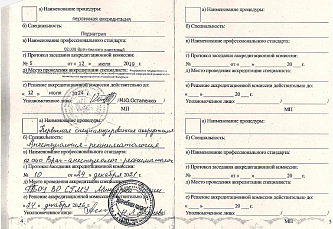 а)Наименование процедуры:
первичная аккредитация
б) Специальность:
Педиатрия
в)Наименование профессионального стандарта:
02.008 Врач-педиатр участковый
г)Протокол заседания аккредитационной комиссии:
№ 5 от « 12 » июля 2019 г.
д)Место проведения аккредитации специалиста:
е)Решение аккредитационной комиссии действительно до:
« 12 » июля
Уполномоченное лицо И.Ю.Остапенко
МП
а)Наименование процедуры:
Первичная специализированная аккредитация
б) Специальность:
Анестезиология-реаниматология
в)Наименование профессионального стандарта:
Врач-анестезиолог-реаниматолог
г)Протокол заседания аккредитационной комиссии:
№ 10 от « 24 » декабря 2021 г.
д)Место проведения аккредитации специалиста:
е)Решение аккредитационной комиссии действительно до:
« 24 » декабря
Уполномоченное лицо
а)Наименование процедуры:
б) Специальность:
в)Наименование профессионального стандарта:
г)Протокол заседания аккредитационной комиссии:
№ от « » 20 г.
д)Место проведения аккредитации специалиста:
е)Решение аккредитационной комиссии действительно до:
« » 20 г.
Уполномоченное лицо
МП
а)Наименование процедуры:
б) Специальность:
в)Наименование профессионального стандарта:
г)Протокол заседания аккредитационной комиссии:
№ от « » 20 г.
д)Место проведения аккредитации специалиста:
е)Решение аккредитационной комиссии действительно до:
« » 20 г.
Уполномоченное лицо
МП